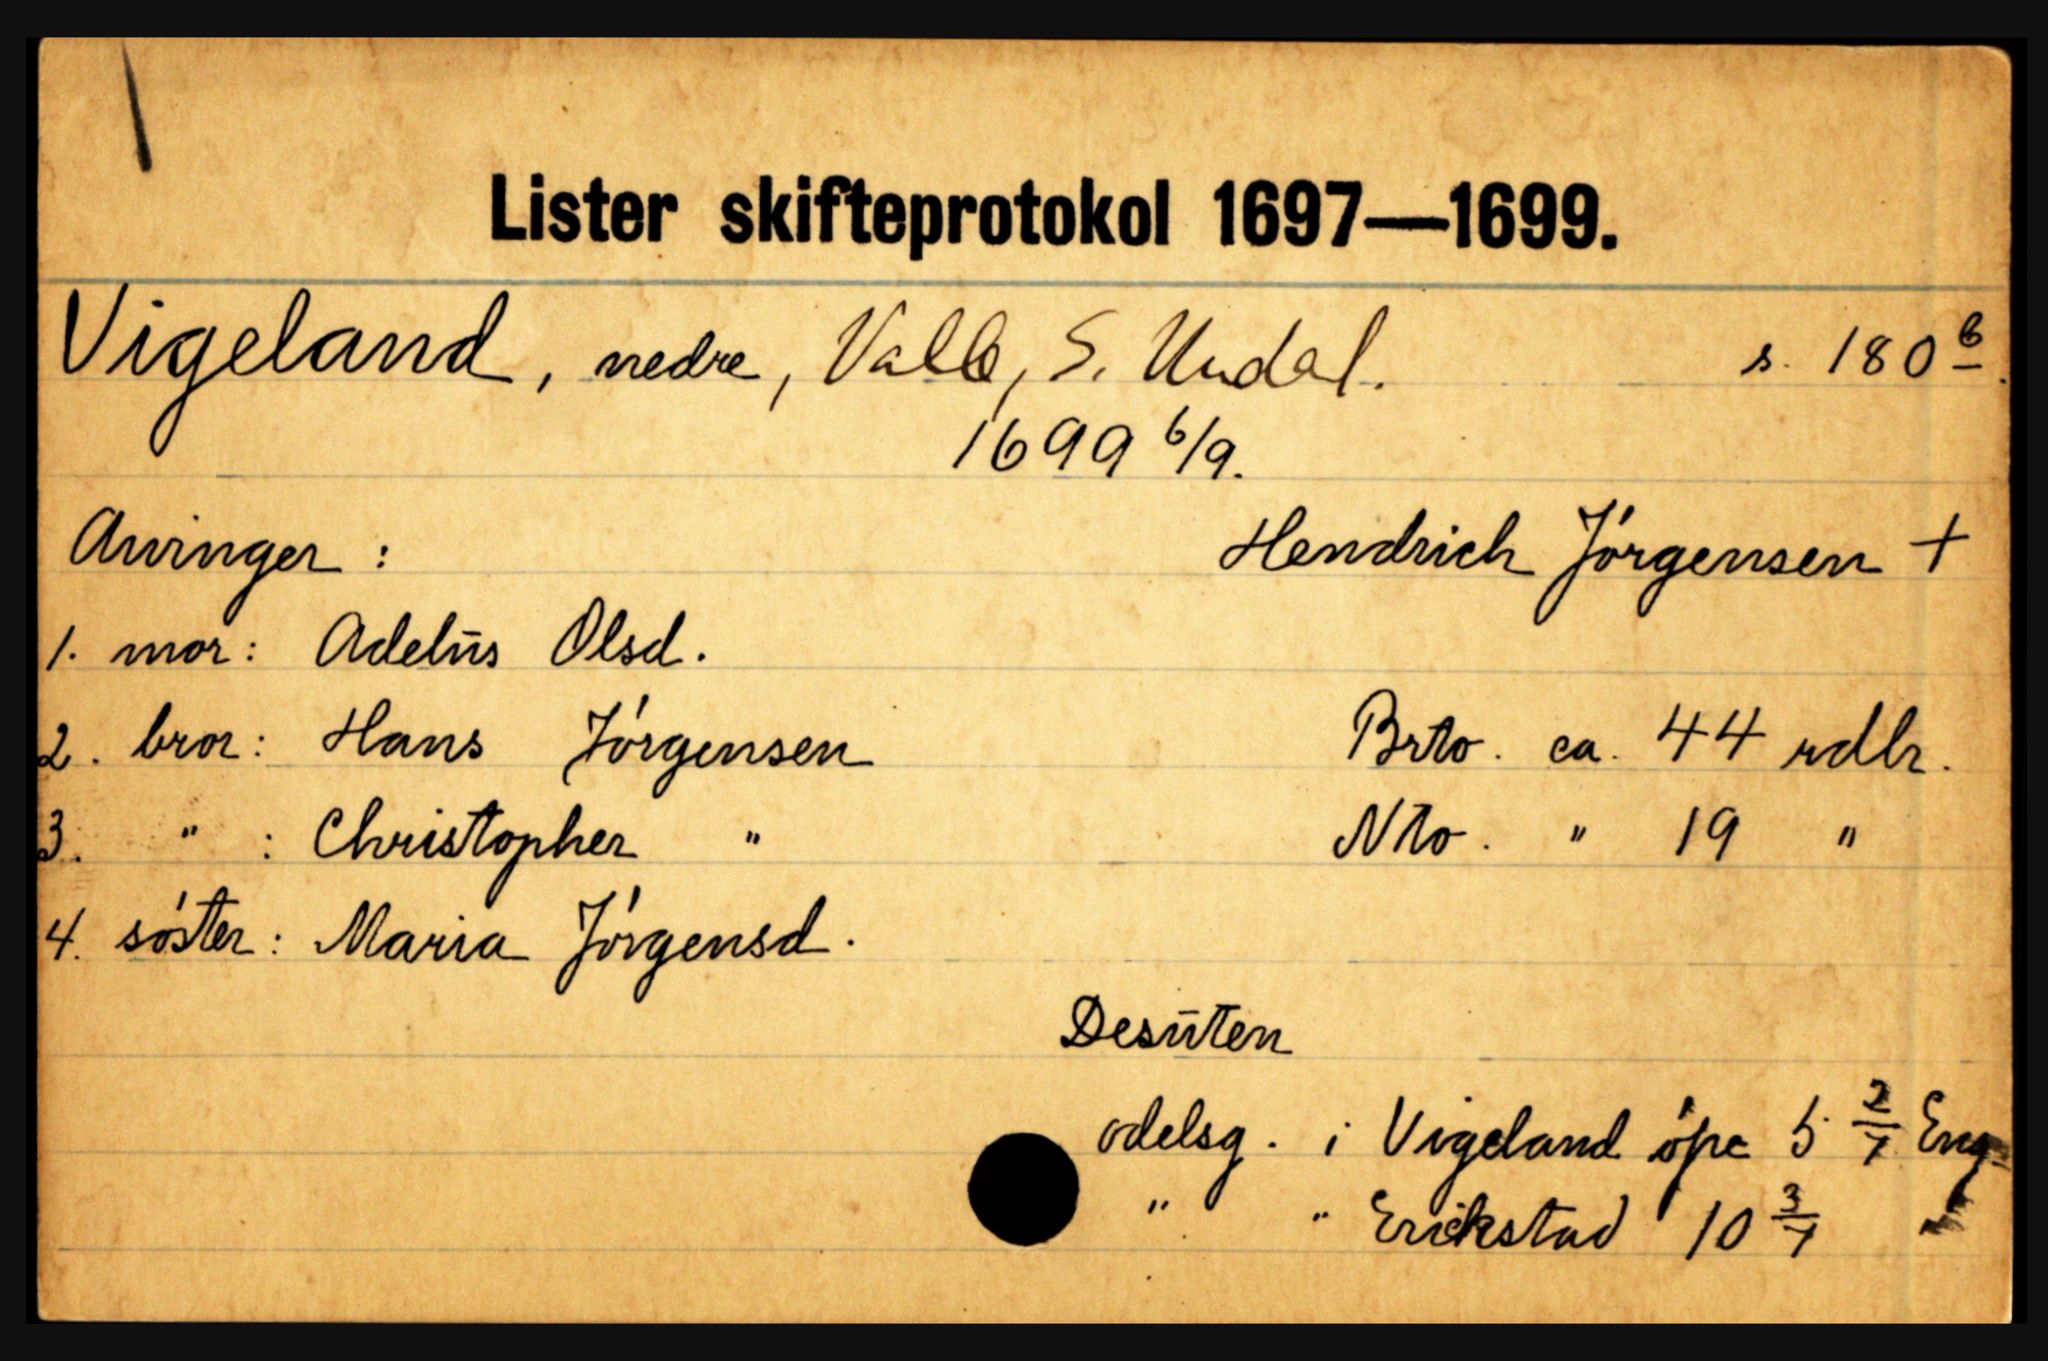 Lister skifteprotokol 1697—1699.
Vigeland, nedre, Valle, S. Undal. s. 180 b.
1699 6/9.
Arvinger: Hendrich Jórgensen +
1. mor: Adelūs Olsd.
2. bror: Hans Jórgensen Brto. ca. 44 rdlr.
3. " : Christopher " Nto. " 19 "
4. sóster: Maria Jórgensd.
Desūten
odelsg. i Vigeland ópe 5 2/7 Eng
" " Erikstad 10 3/7 "